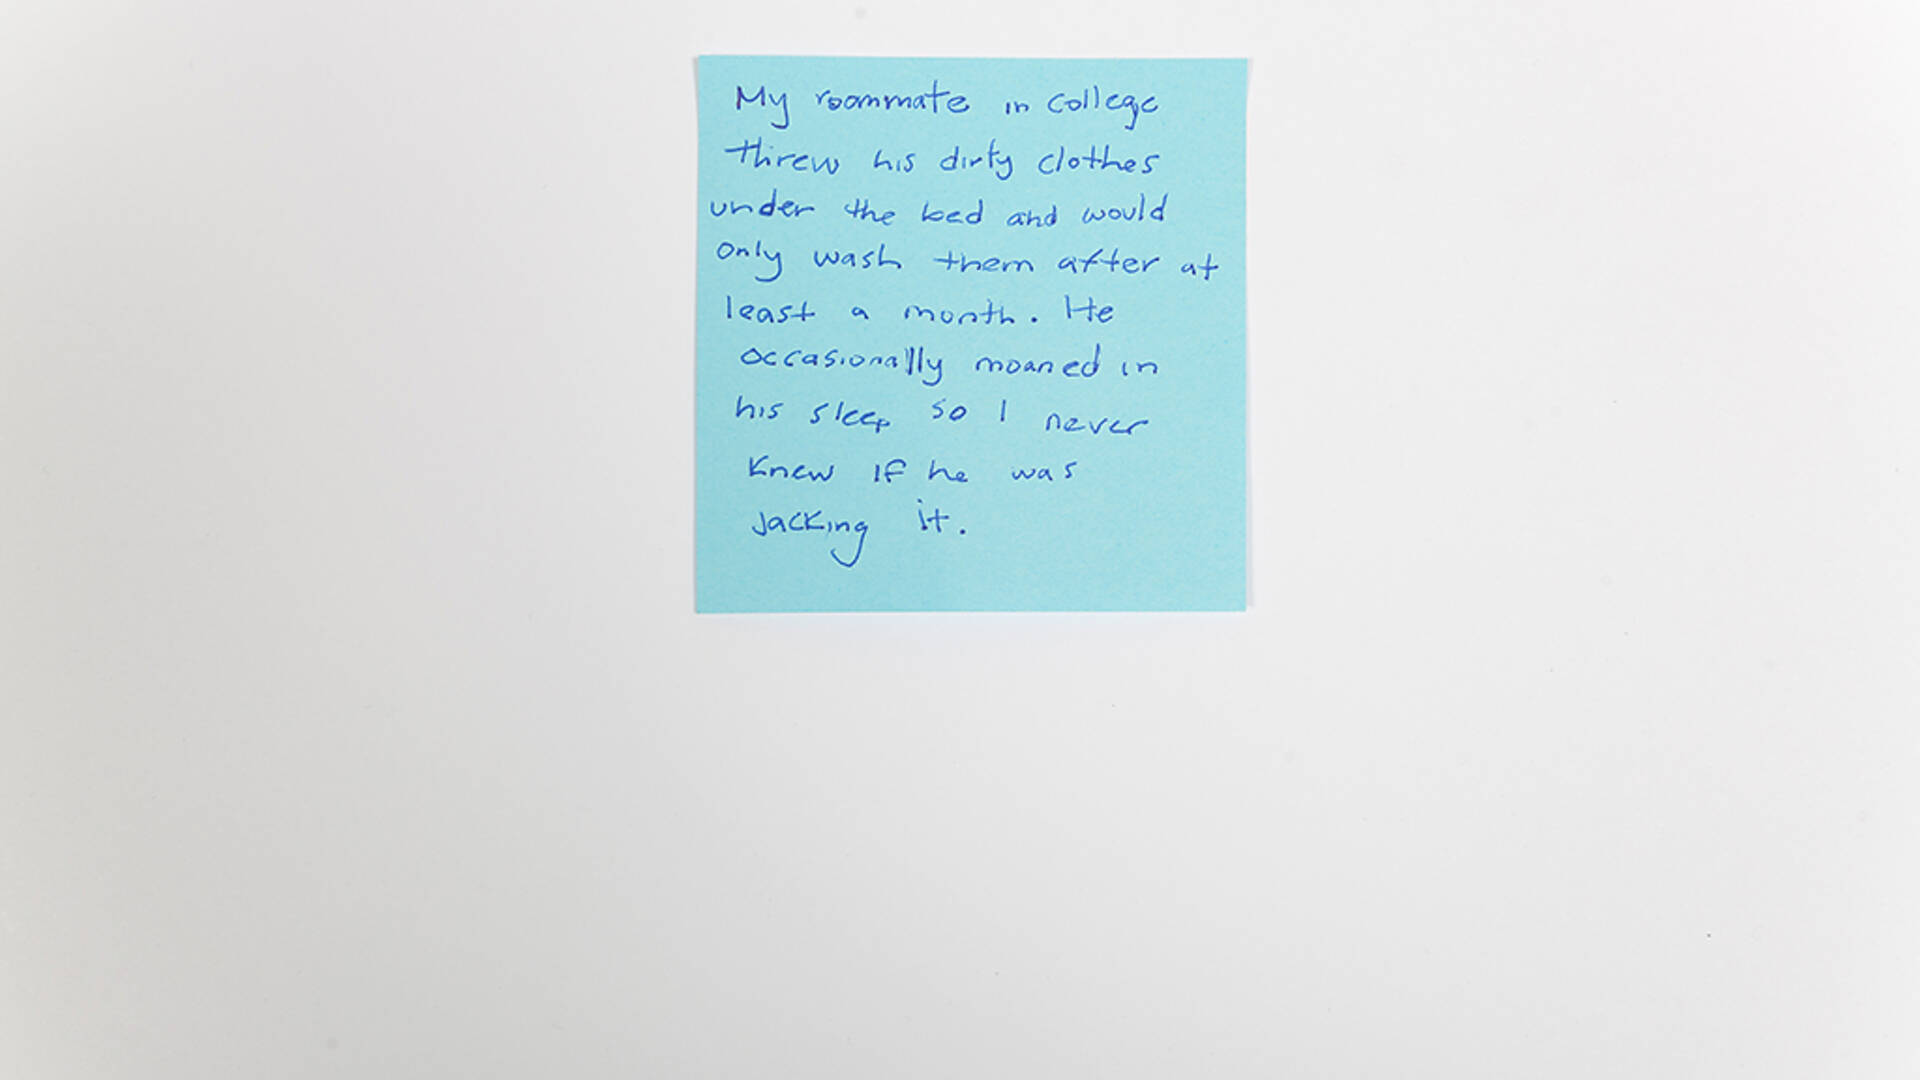 My roommate in college
threw his dirty clothes
under the bed and would
only wash them after at
least a month. He
occasionally moaned in
his sleep so I never
knew if he was
jacking it.